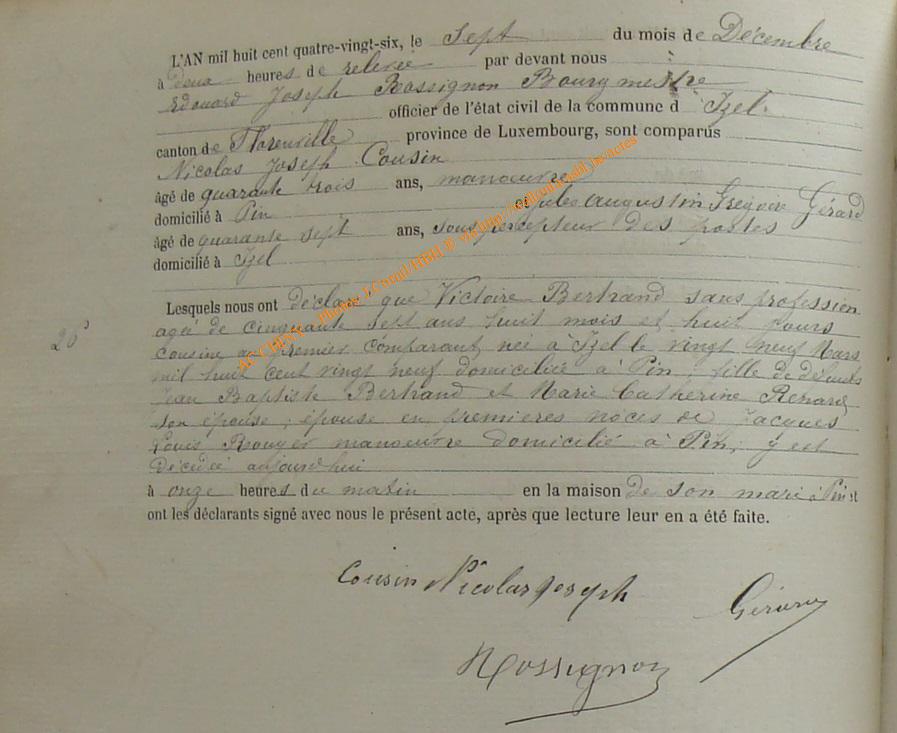 L'AN mil huit cent quatre-vingt-six, le Sept du mois de Décembre
à deux heures de relevée par devant nous
Edouard Joseph Rossignon Bourgmestre
officier de l'état civil de la commune d'Izel
canton de Florenville province de Luxembourg, sont comparus
Nicolas Joseph Cousin
âgé de quarante trois ans, manoeuvre
domicilié à Pin et Jules Augustin Grégoire Gérard
âgé de quarante sept ans, sous percepteur des postes
domicilié à Izel
Lesquels nous ont déclaré que Victoire Bertrand sans profession
agée de cinquante sept ans huit mois et huit jours
26
cousine au premier comparant née à Izel le vingt neuf Mars
mil huit cent vingt neuf domiciliée à Pin, fille de défunts
Jean Baptiste Bertrand et Marie Catherine Renard
son épouse; épouse en premieres noces de Jacques
Louis Rouyer manoeuvre domicilié à Pin, y est
décédée aujourd'hui
à onze heures du matin en la maison de son mari à Pin et
ont les déclarants signé avec nous le présent acte, après que lecture leur en a été faite.
Cousin Nicolas Joseph
Gérard
Rossignon
AC CHINY - Photos J.Canal HBH ©